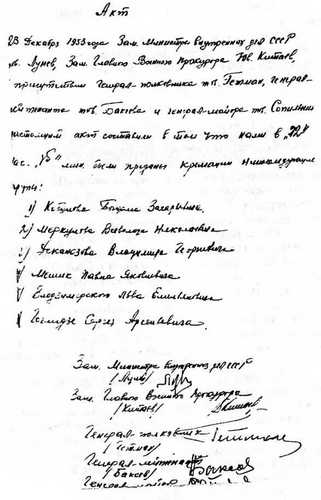 Акт
23 декабря 1953 года Зам. Министра внутренних дел СССР
тов. Лунев, Зам. Главного Военного Прокурора т. Китаев,
в присутствии генерал-полковника тов. Гетман, генерал-
лейтенанта тов. Бакеева и генерал-майора тов. Сопильник
настоящий акт составили в том что нами в "22"
час. "45" мин. были преданы кремации
трупы:
1) Кобулова Богдана Захарьевича,
2) Меркулова Всеволода Николаевича
3) Деканозова Владимира Георгиевича
4) Мешик Павла Яковлевича
5) Влодзимирского Льва Емельяновича
6) Гоглидзе Сергея Арсентьевича.
Зам. Министра внутренних дел СССР
(Лунев)
Зам. Главного Военного Прокурора
(Китаев) Дкитаев
Генерал-полковник Гетман
(Гетман)
Генерал-лейтенант
(Бакеев) Бакеев
Генерал-майор